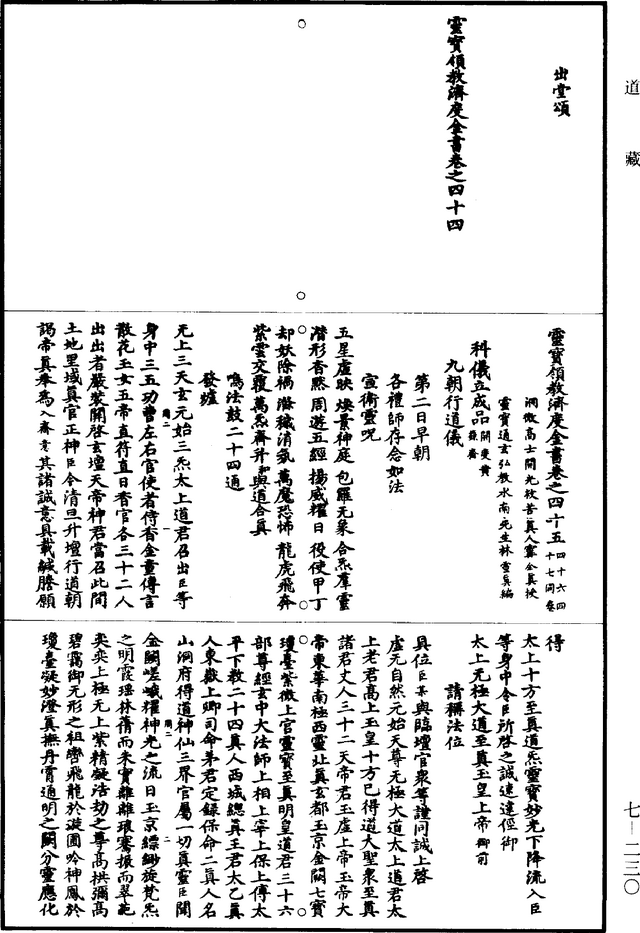 道藏
出堂頌
靈寶領教濟度金書卷之四十四
靈寶領教濟度金書卷之四十五 四十六四十七同卷
洞微高士開光救苦真人寗全真授
靈寶通玄弘教水南先生林靈真編
科儀立成品 開度黃籙齋
九朝行道儀
第二日早朝
各禮師存念如法
宣衛靈呪
五星虛映 煥景神庭 包羅无象 合炁羣靈
潛形香煕 周遊五經 揚威耀日 役使甲丁
却妖除禍 滌穢消氛 萬魔恐怖 龍虎飛奔
紫雲交覆 萬炁齋升 與道合真
鳴法鼓二十四通
發爐
无上三天玄元始三炁太上道君召出臣等
身中三五功曹左右官使者侍香金童傳言
散花玉女五帝直符直日香官各三十二人
出出者嚴裝關啓玄壇天帝神君當召此間
土地里域真官正神臣今清旦升壇行道朝
謁帝真奉為入齋意其諸誠意具載緘謄願
得
太上十方至真道炁靈寶妙光下降流入臣
等身中令臣所啓之誠速達徑御
太上无極大道至真玉皇上帝 御前
請稱法位
具位臣某與臨壇官衆等謹同誠上啓
虛无自然元始天尊无極大道太上道君太
上老君高上玉皇十方已得道大聖衆至真
諸君丈人三十二天帝君玉虛上帝玉帝大
帝東華南極西靈北真玄都玉京金闕七寶
瓊臺紫微上宮靈寶至真明皇道君三十六
部尊經玄中大法師上相上宰上保上傅太
平下教二十四真人西城總真王君太乙真
人東嶽上卿司命茅君定錄保命二真人名
山洞府得道神仙三界官屬一切真靈臣聞
金闕嵯峨耀神光之流日玉京縹緲旋梵炁
之明霞瑶林蒨而朱實離離琅簡振而翠葩
奕奕上極无上紫精凝浩劫之尊高拱彌高
碧靄御无形之祖轡飛龍於漩圃吟神鳳於
瓊臺凝妙澄真撫丹霄通明之闕分靈應化
七—二三〇